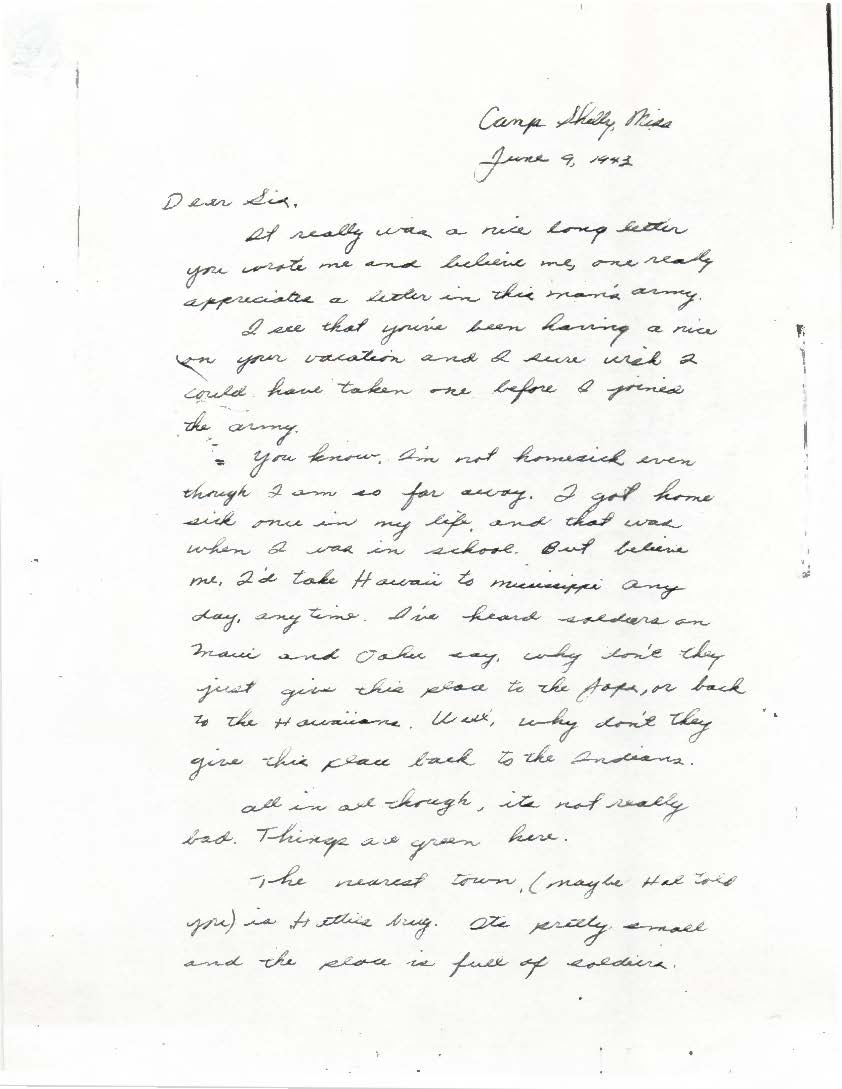 Camp Shelly, Miss
June 9, 1943
Dear Sis,
It really was a nice long letter
you wrote me and believe me, one really
appreciates a letter in this man's army.
I see that you've been having a nice
on your vacation and I sure wish I
could have taken one before I joined
the army.
You know, I'm not homesick even
though I am so far away. I got home
sick once in my life, and that was
when I was in school. But believe
me, I'd take Hawaii to mississippi any
day, anytime. I've heard soldiers on
Maui and Oahu say, why don't they
just give this place to the Japs, or back
to the Hawaiians. Well, why don't they
give this place back to the Indians.
all in all though, its not really
bad. Things are green here.
The nearest town, (maybe Hal told
you) is Hattisburg. Its pretty small
and the place is full of soldiers.